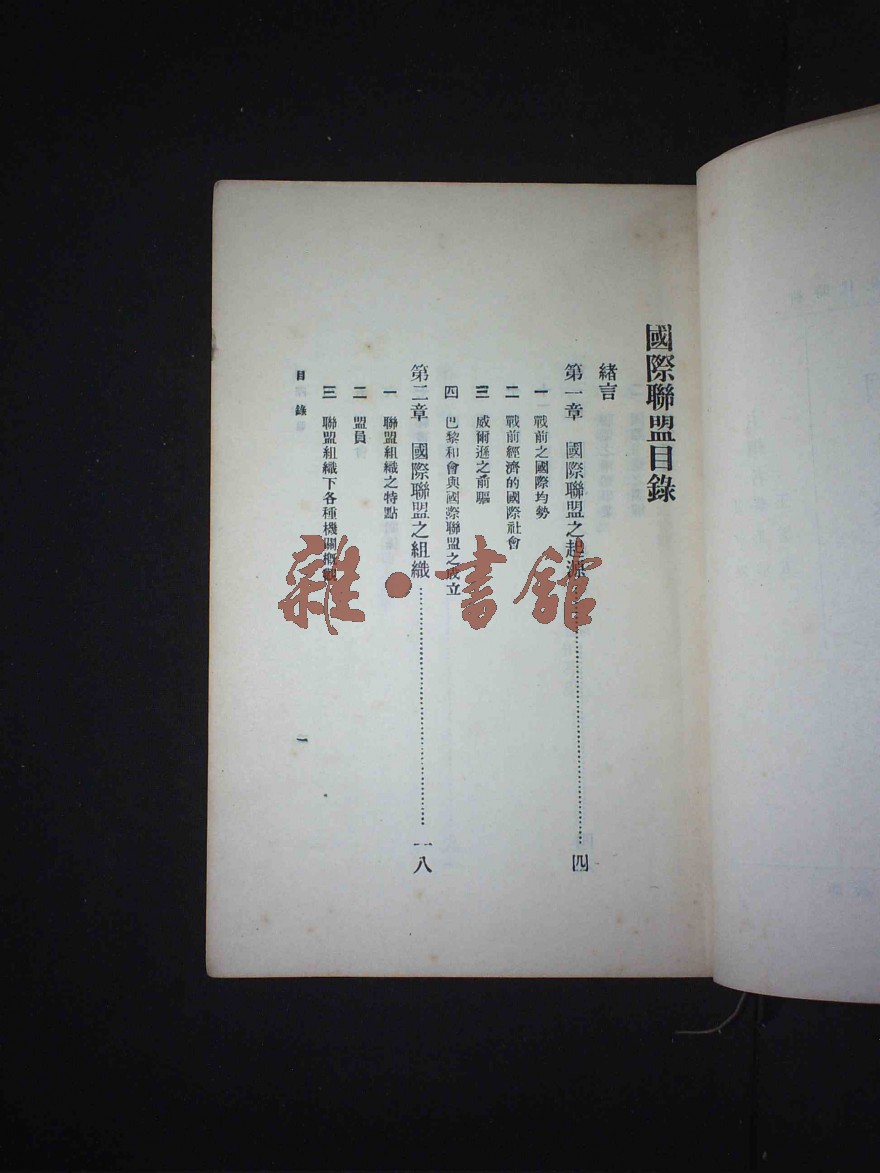 國際聯盟目錄
緒言
第一章 國際聯盟之起源……四
一 戰前之國際均勢
二 戰前經濟的國際社會
三 威爾遜之前驅
四 巴黎和會與國際聯盟之成立
第二章 國際聯盟之組織……一八
一 聯盟組織之特點
二 盟員
三 聯盟組織下各種機關概觀
目錄
一
雜·書館